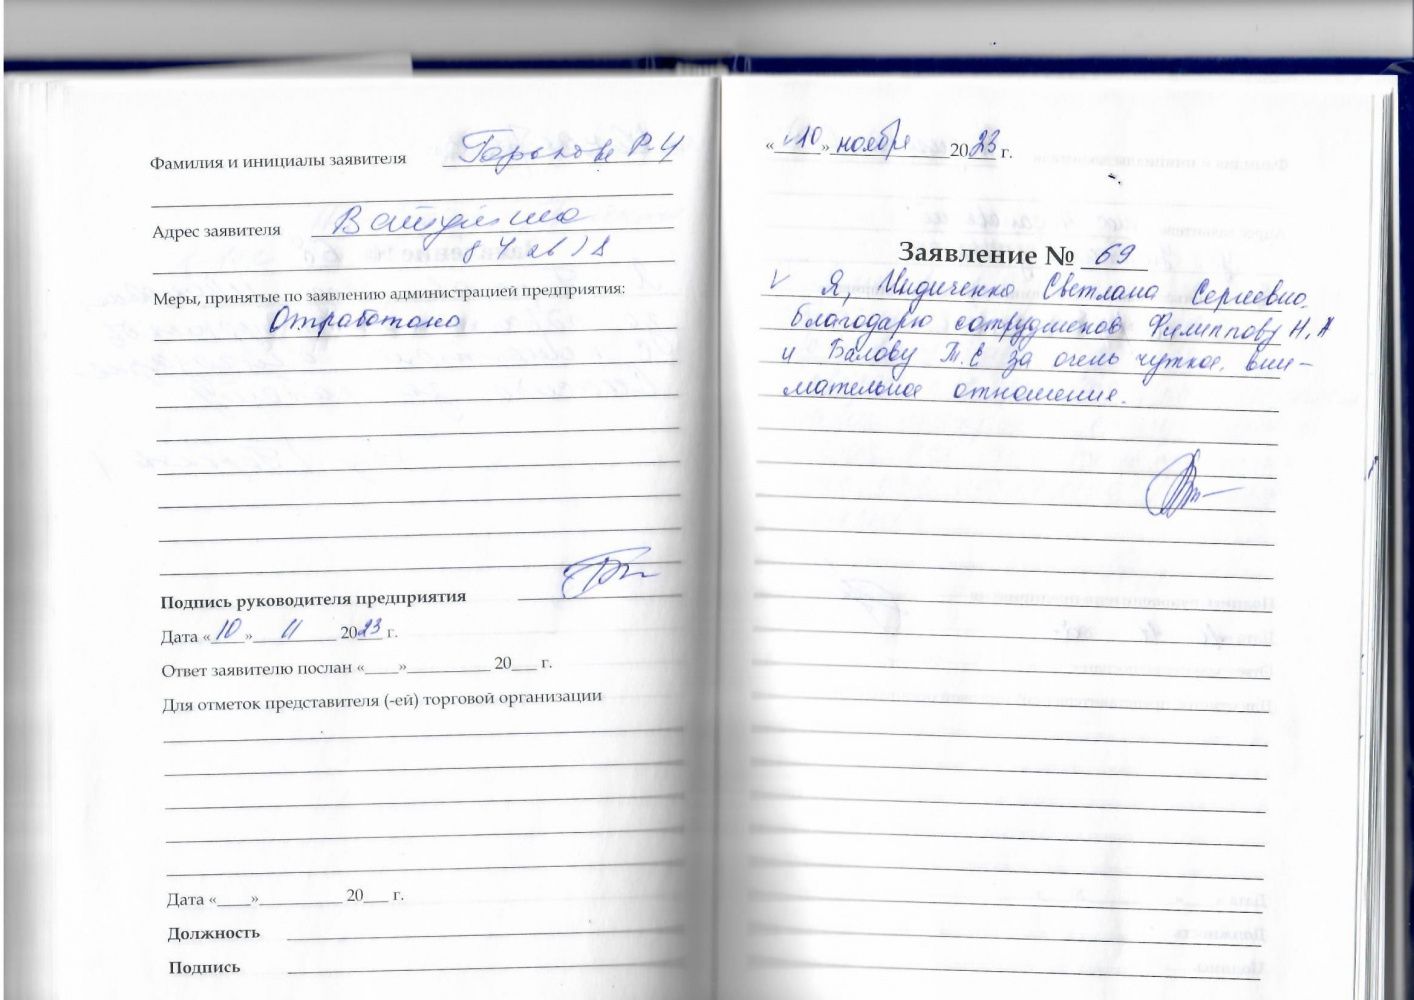 Фамилия и инициалы заявителя Р.И
Адрес заявителя
Меры, принятые по заявлению администрацией предприятия:
Отработано
Подпись руководителя предприятия
Дата «10» 11 2023 г.
Ответ заявителю послан «____»__________ 20___ г.
Для отметок представителя (-ей) торговой организации
Дата «____»__________ 20___ г.
Должность
Подпись
«10» ноября 2023 г.
Заявление № 69
Я, Светлана Сергеевна.
Благодарю сотрудников Филиппову Н.А
и Балову Т.Е за очень чуткое, вни-
мательное отношение.